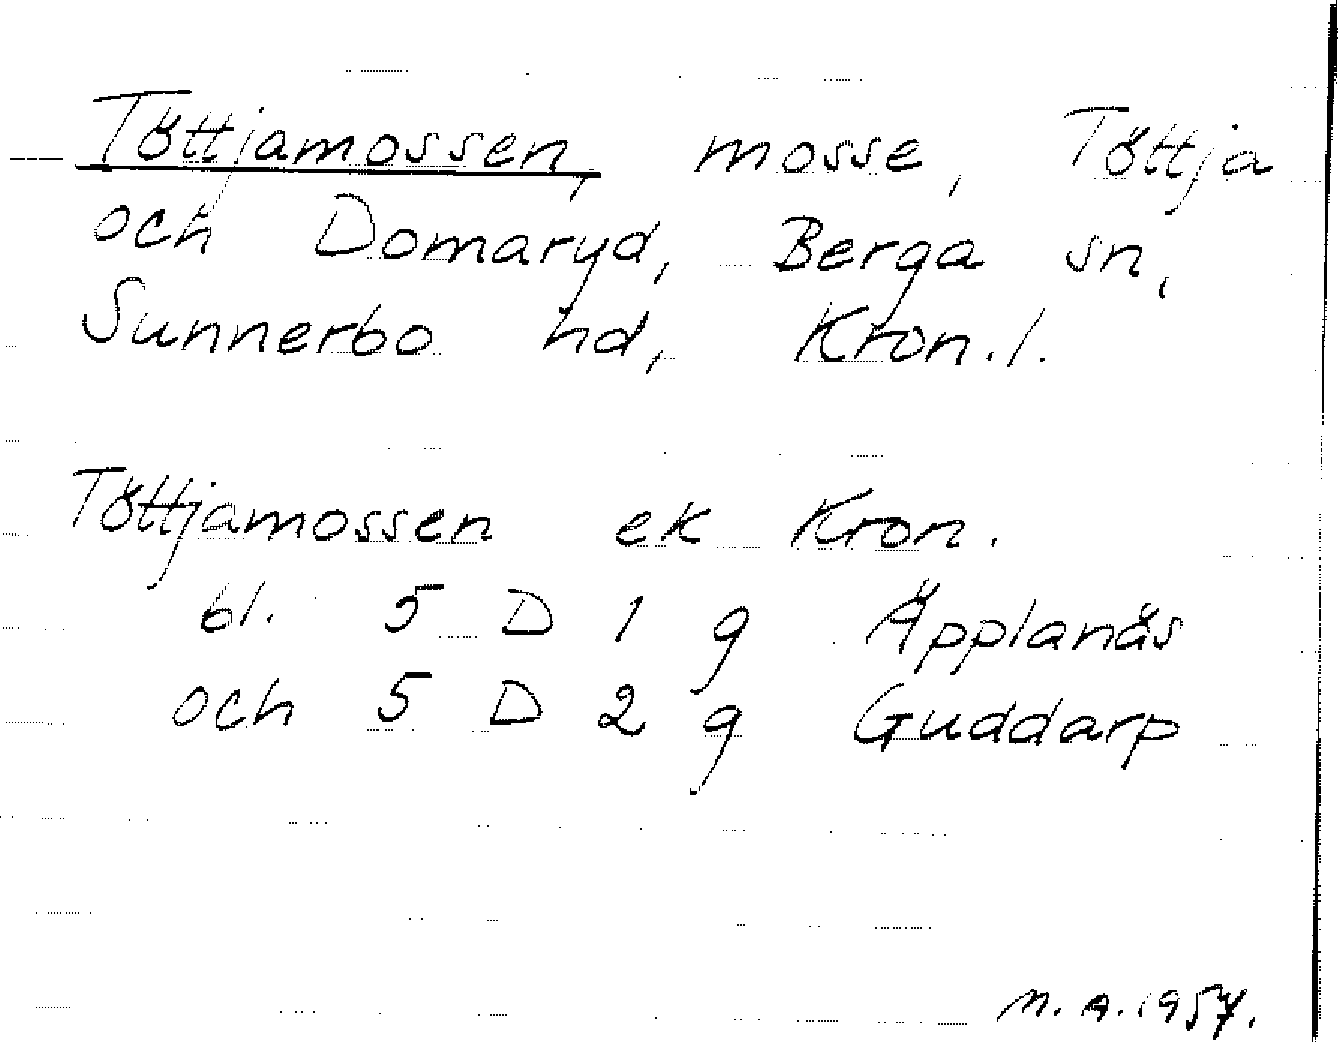 Töttjamossen, mosse, Töttja
och Domaryd, Berga sn,
Sunnerbo hd, Kron.l.
Töttjamossen ek Kron.
bl. 5 D 1 g Äpplanäs
och 5 D 2 g Guddarp
M.A.1957.